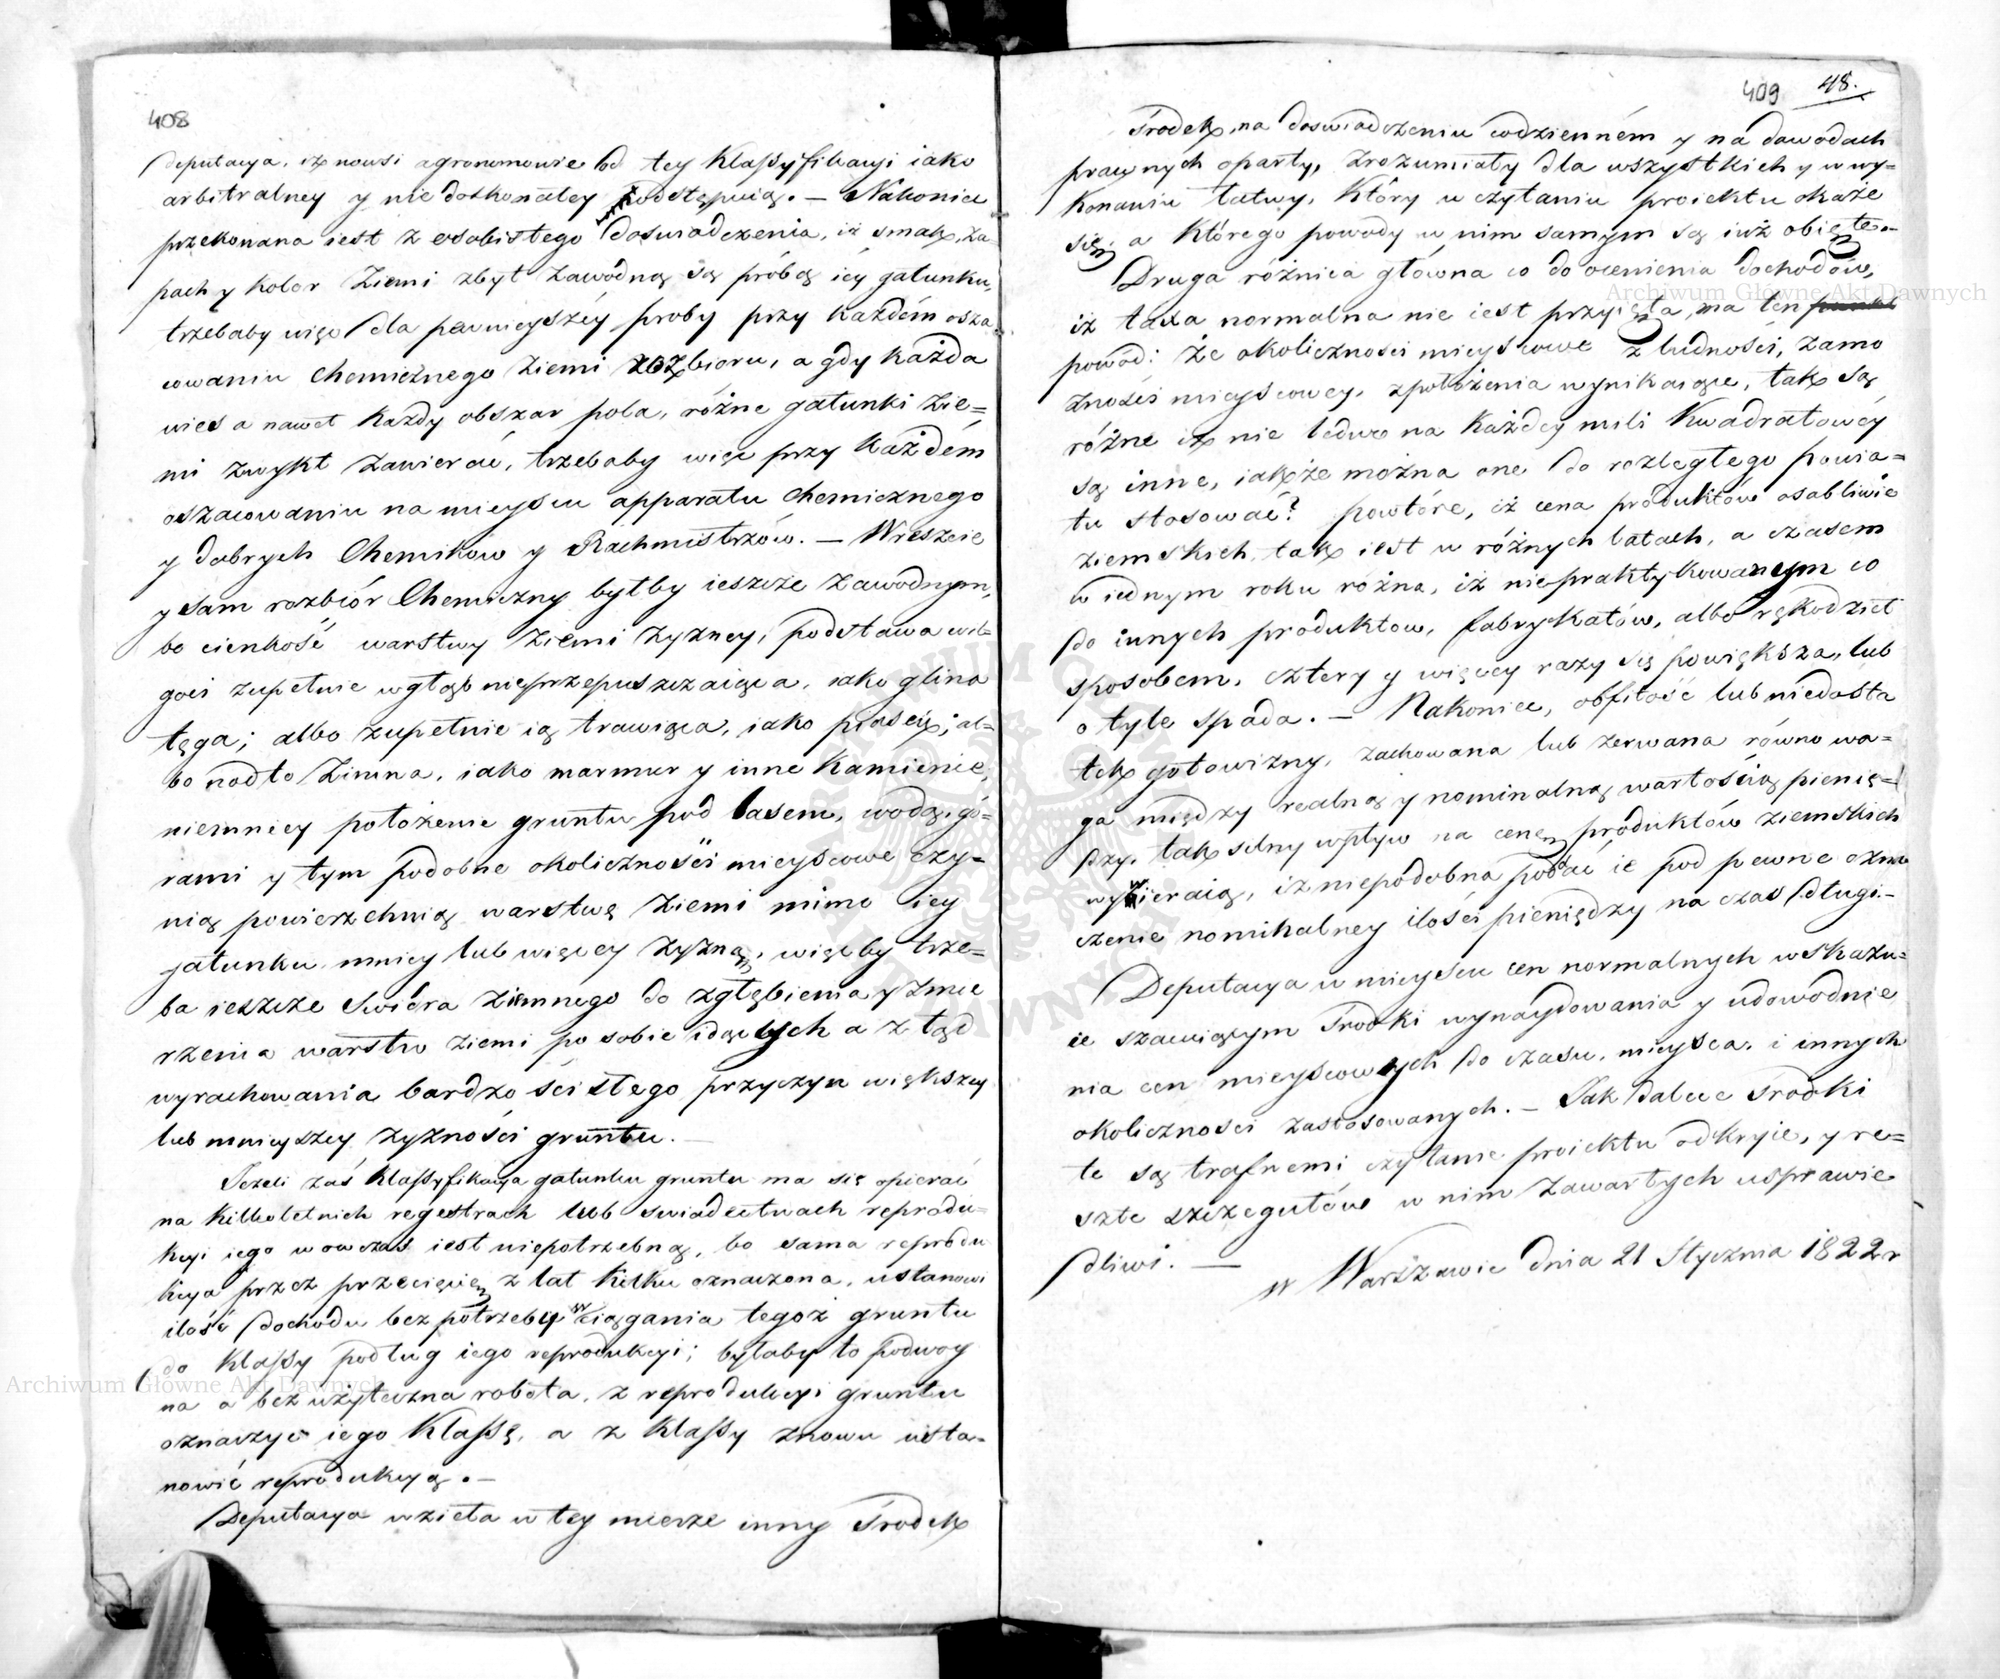 408
Deputacya, iż nowsi agronomowie od tey klassyfikacyi iako
arbitralney y nie doskonałey odstępuią. — Nakoniec
przekonana iest z osobistego doswiadczenia, iż smak, za-
pach y kolor ziemi zbyt zawodną są próbą iéy gatunku,
trzebaby więc dla pewnieyszéy proby przy każdém osza
cowaniu chemicznego ziemi rozbioru, a gdy każda
wies a nawet każdy obszar pola, różne gatunki zie=
mi zwykł zawierać, trzebaby więc przy każdém
oszacowaniu na mieyscu apparatu chemicznego
y dobrych Chemików y Rachmistrzów. — Wreszcie
y sam rozbiór Chemiczny byłby ieszcze zawodnym,
bo cienkość warstwy ziemi żyzney, podstawa wil-
goci zupełnie wgłąb nieprzepuszczaiąca, iako glina
tęga; albo zupełnie ią trawiąca, iako piasek; al=
bo nadto zimna, iako marmur y inne kamienie,
niemniey położenie gruntu pod lasem, wodą, gó=
rami y tym podobne okoliczności mieyscowe czy=
nią powierzchnią warstwę ziemi mimo iey
gatunku mniey lub więcey żyzną, więc by trze=
ba ieszcze swidra ziemnego do zgłębienia y zmie
rzenia warstw ziemi po sobie idących a z tąd
wyrachowania bardzo ścisłego przyczyn większey
lub mnieyszey żyzności gruntu. —
Jeżeli zaś klassyfikacya gatunku gruntu ma się opierać
na kilkoletnich regestrach lub swiadectwach reprodu-
kcyi iego wowczas iest niepotrzebną, bo sama reprodu
kcya przez przecięcie z lat kilku oznaczona, ustanowi
ilość dochodu bez potrzeby wciągania tegoż gruntu
do klassy podług iego reprodukcyi; byłaby to podwoy
na a bez użyteczna robota, z reprodukcyi gruntu
oznaczyć iego klassę, a z klassy znowu usta-
nowić reprodukcyą. —
Deputacya wzieła w tey mierze inny środek
409 48.
środek, na doswiadczeniu codzienném y na dowodach
prawnych oparty, zrozumiały dla wszystkich y w wy-
konaniu łatwy, który w czytaniu proiektu okaże
się, a którego powody w nim samym są iuż obięte. —
Druga różnica główna co do ocenienia dochodów,
iż taxa normalna nie iest przyięta, ma ten
powód; że okoliczności mieyscowe z ludności, zamo
żności mieyscowey, z położenia wynikaiące, tak są
różne iż nie ledwo na każdey mili kwadratowéy
są inne, iakże można one do rozległego powia=
tu stosować? powtóre, iż cena produktów osobliwie
ziemskich tak iest w różnych latach, a czasem
w iednym roku różna, iż niepraktykowanym co
do innych produktow, fabrykatów, albo rękodzieł
sposobem, cztery y więcey razy się powiększa, lub
o tyle spada. — Nakoniec, obfitość lub niedosta
tek gotowizny, zachowana lub zerwana równowa=
ga między realną y nominalną wartością pienię=
dzy, tak silny wpływ na cenę produktów ziemskich
wywieraią, iż niepodobna podać ie pod pewne ozna
czenie nominalney ilości pieniędzy na czas długi. —
Deputacya w mieyscu cen normalnych wskazu=
ie szacuiącym środki wynaydowania y udowodnie
nia cen mieyscowych do czasu, mieysca, i innych
okoliczności zastosowanych. — Jak dalece srodki
te są trafnemi czytanie proiektu odkryie, y re=
szte szczegułów w nim zawartych usprawie
dliwi. —
w Warszawie dnia 21 Stycznia 1822 r
Archiwum Główne Akt Dawnych
Archiwum Główne Akt Dawnych
ARCHIWUM GŁÓWNE AKT DAWNYCH